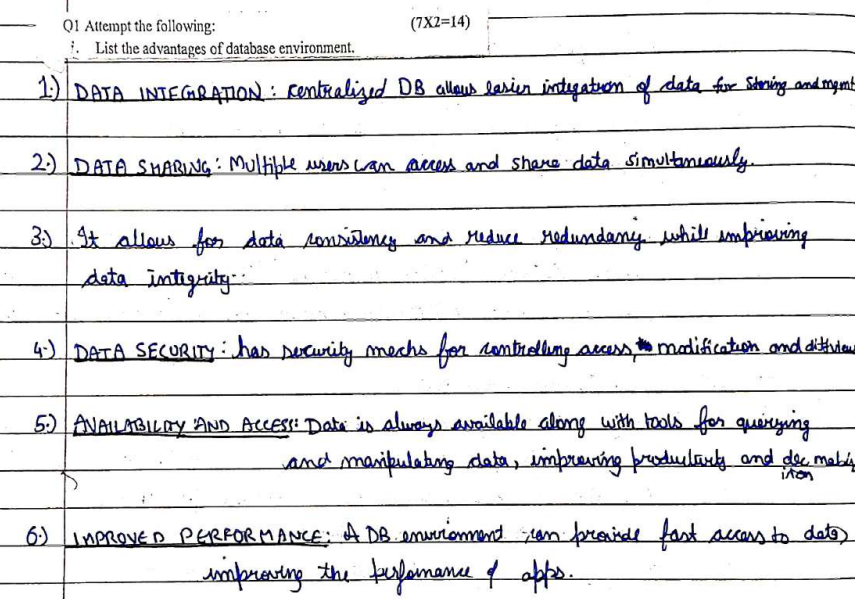 Q1 Attempt the following: (7X2=14)
i. List the advantages of database environment.
1.) DATA INTEGRATION: Centralized DB allows easier integration of data for storing and mgmt
2.) DATA SHARING: Multiple users can access and share data simultaneously.
3.) It allows for data consistency and reduce redundancy while improving
data integrity.
4.) DATA SECURITY: has security mechs for controlling access, modification and
5.) AVAILABILITY AND ACCESS: Data is always available along with tools for querying
and manipulating data, improving productivity and decision making
6.) IMPROVED PERFORMANCE: A DB environment can provide fast access to data,
improving the performance of apps.